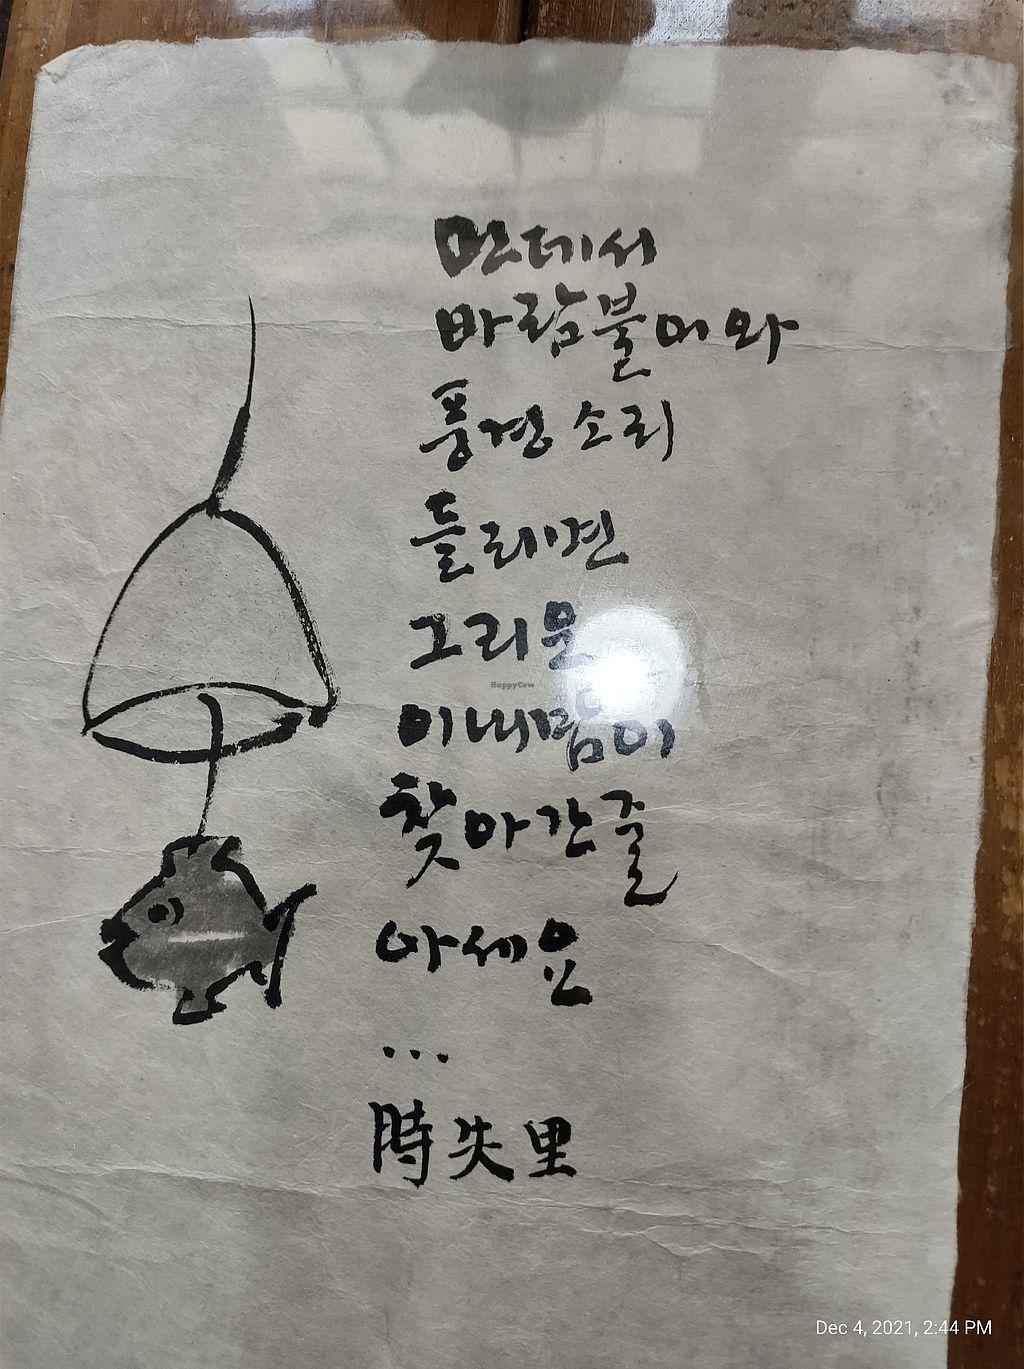 먼데서
바람불어와
풍경 소리
들리면
그리운
HappyCow
이내맘이
찾아간줄
아세요
...
時失里
Dec 4, 2021, 2:44 PM